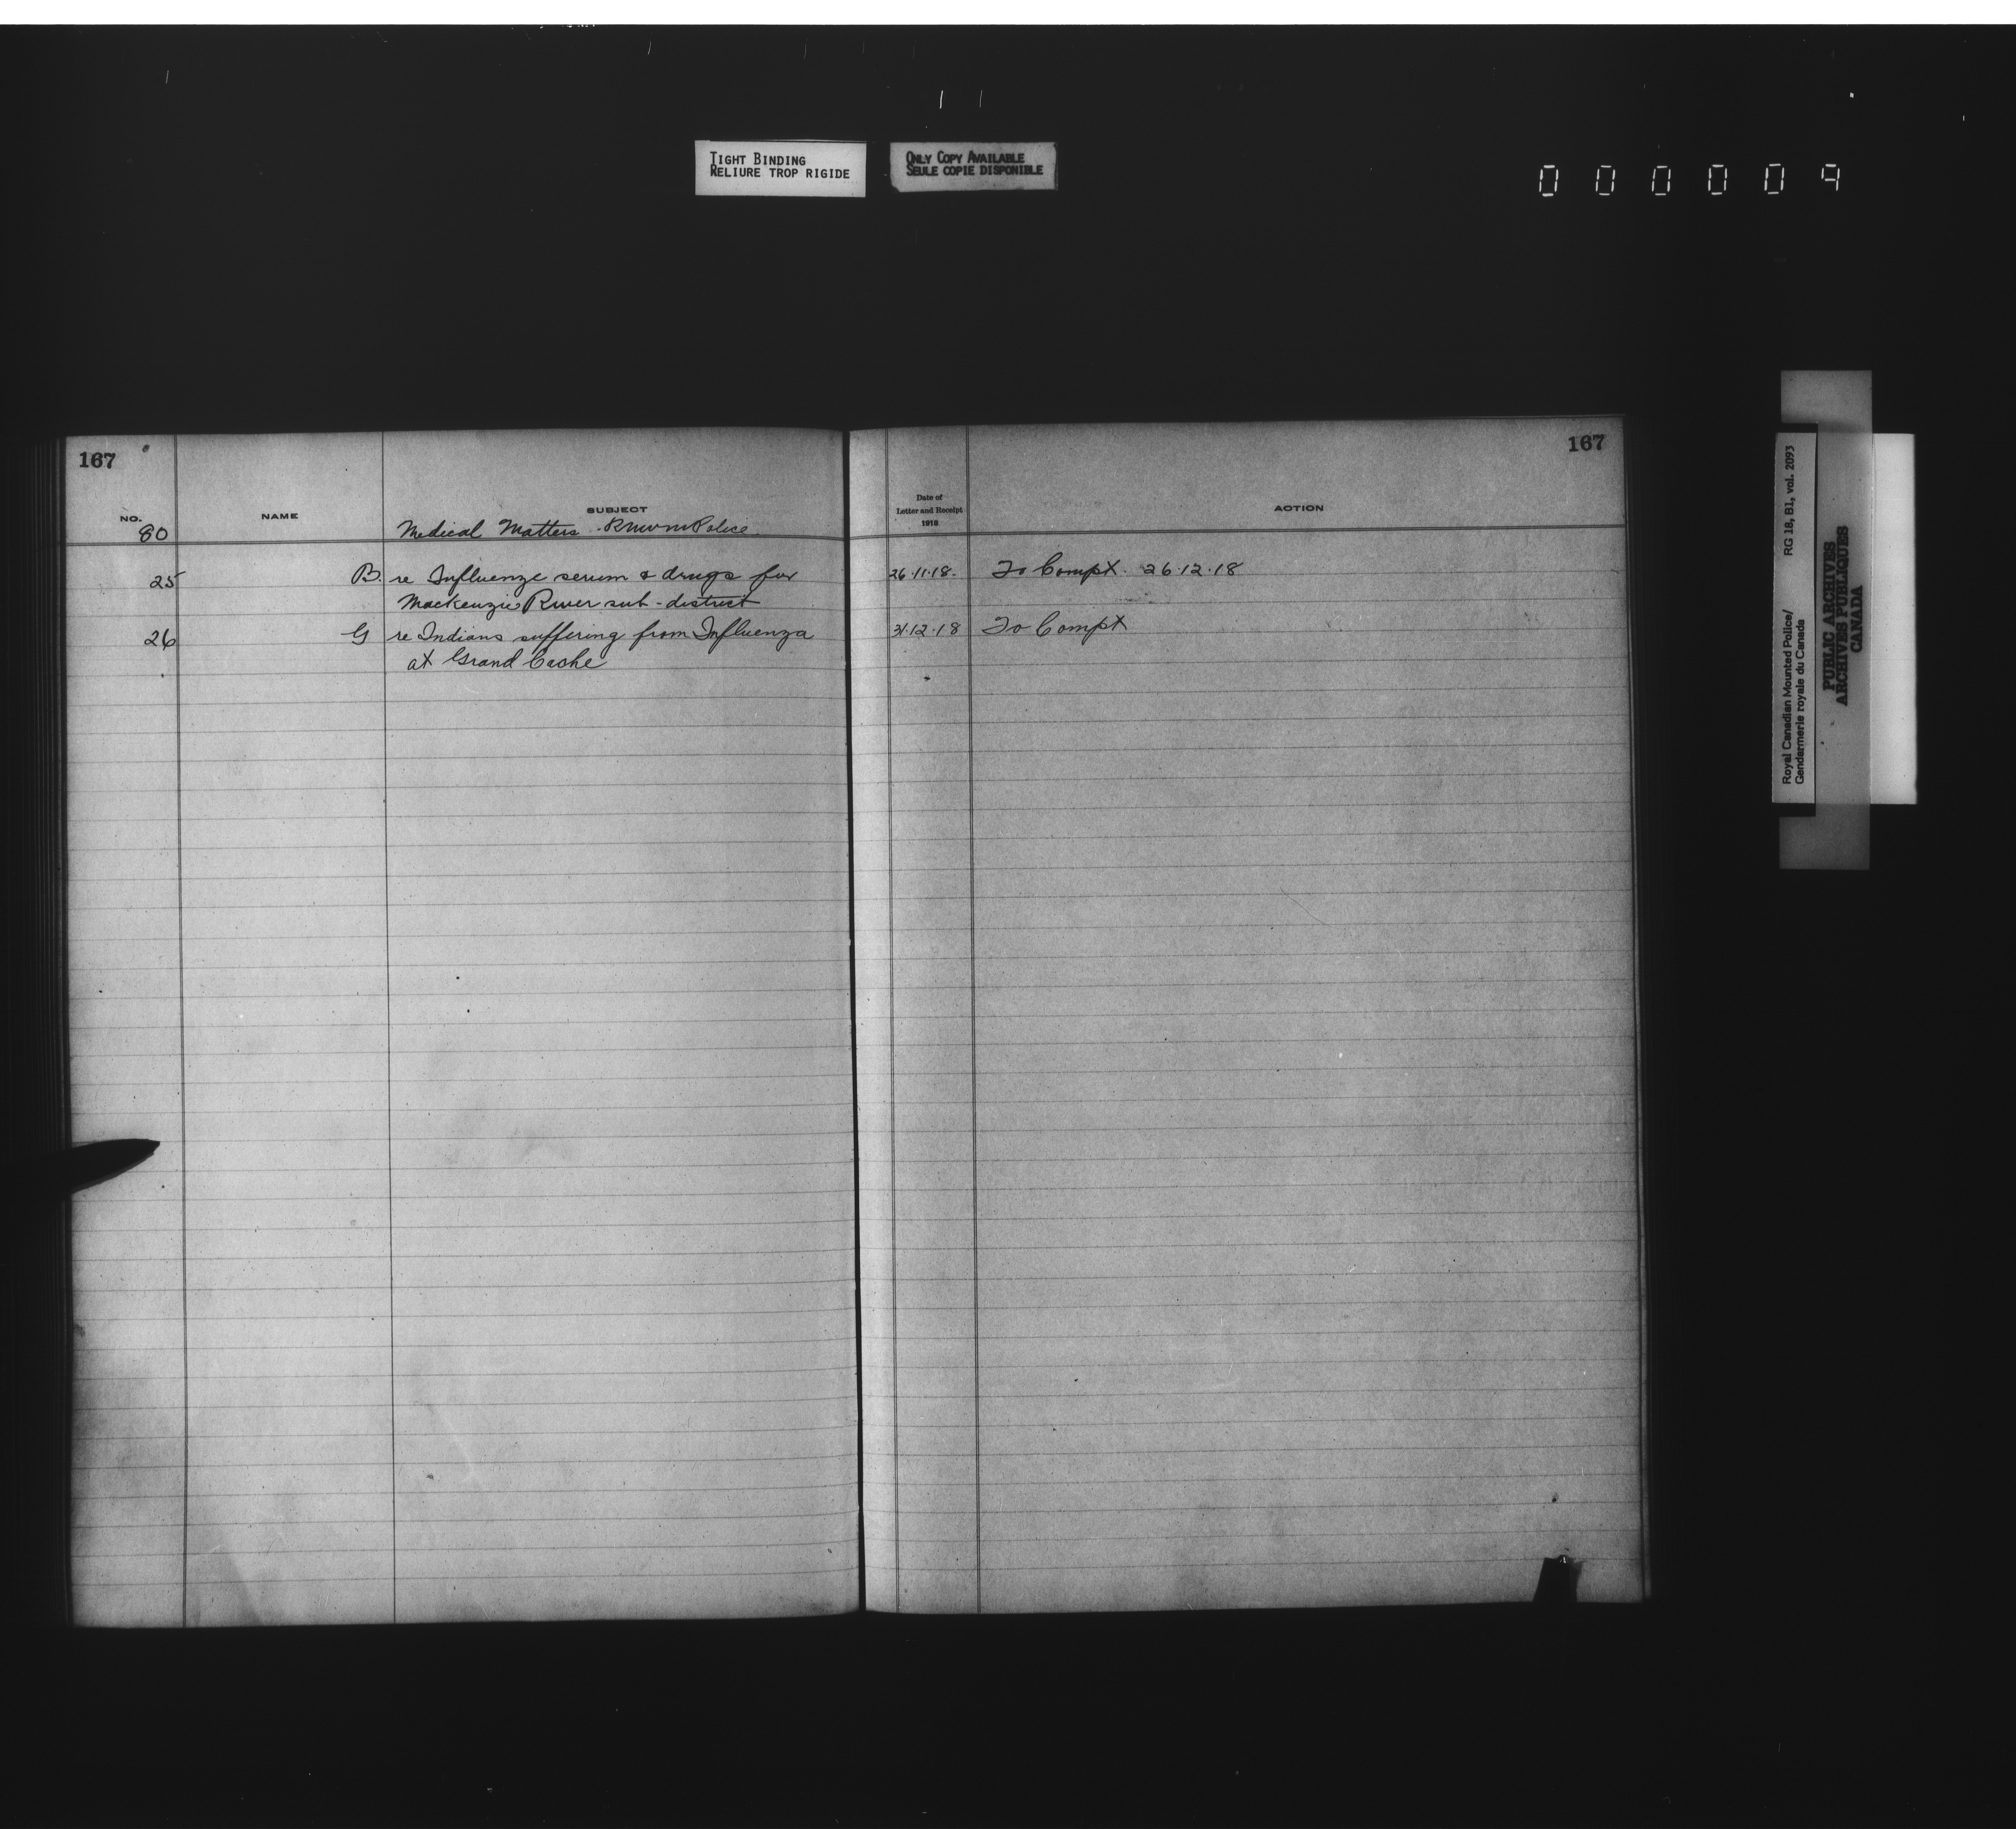 TIGHT BINDING
RELIURE TROP RIGIDE
ONLY COPY AVAILABLE
SEULE COPIE DISPONIBLE
000009
167
NO. NAME SUBJECT
80 Medical Matters - RNWMPolice.
25 B. re Influenze serum & drugs for
Mackenzie River sub-district
26 G re Indians suffering from Influenza
at Grand Cache
167
Date of
Letter and Receipt
1918
ACTION
26.11.18. To Compt. 26.12.18
31.12.18 To Compt
Royal Canadian Mounted Police/ RG 18, B1, vol. 2093
Gendarmerie royale du Canada
PUBLIC ARCHIVES
ARCHIVES PUBLIQUES
CANADA